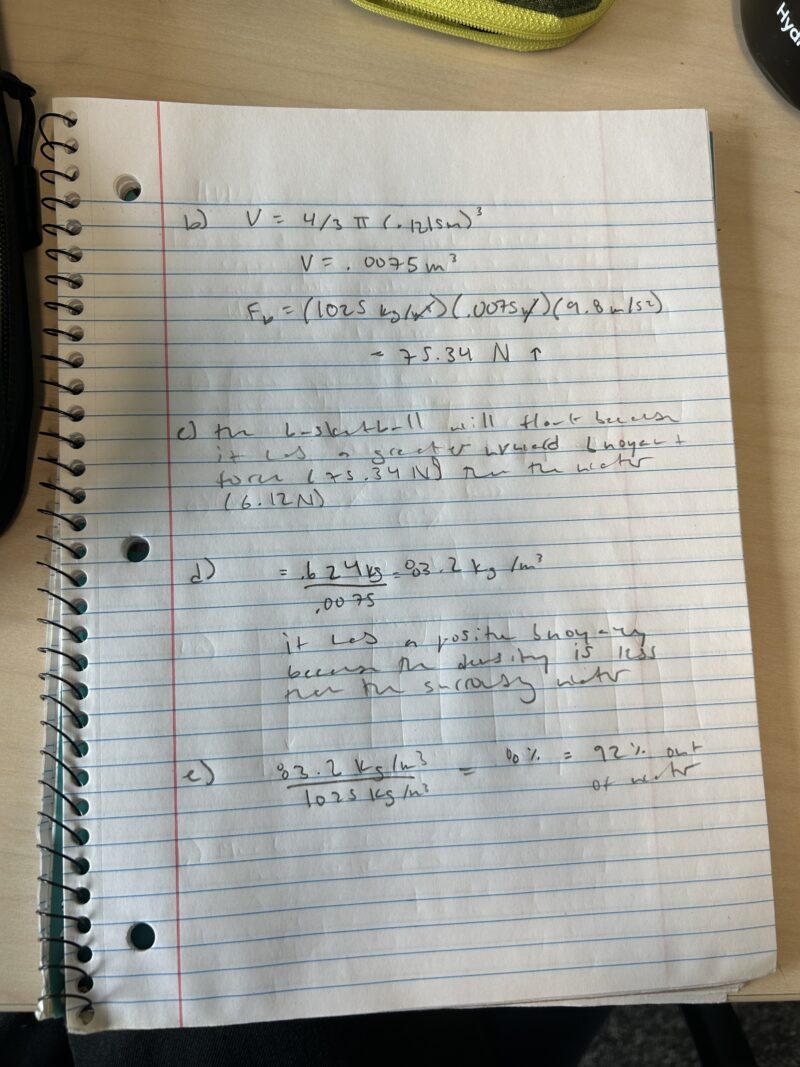 Hydr
b) V = 4/3 π (.1215m)³
V = .0075 m³
F_b = (1025 kg/m³)(.0075m³)(9.8 m/s²)
= 75.34 N ↑
c) the basketball will float because
it has a greater upward buoyant
force (75.34 N) than the water
(6.12N)
d) = .624kg/.0075 = 83.2 kg/m³
it has a positive buoyancy
because the density is less
than the surroundg water
e) 83.2 kg/m³ / 1025 kg/m³ = % = 92% out
of water